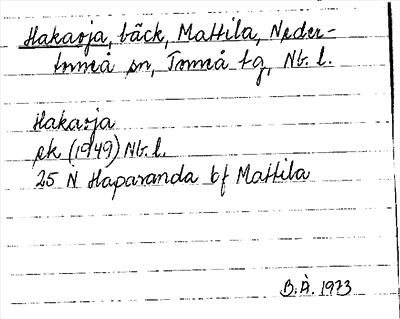 Hakaoja, bäck, Mattila, Neder-
torneå sn, Torneå tg, Nb. l.
Hakaoja
ek (1949) Nb. l.
25 N Haparanda bf Mattila
B. Å. 1973